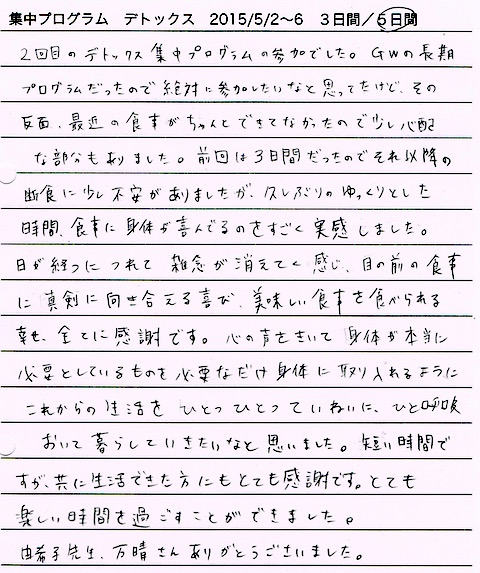 集中プログラム デトックス 2015/5/2～6 3日間／5日間
2回目のデトックス集中プログラムの参加でした。GWの長期
プログラムだったので絶対に参加したいなと思ってたけど、その
反面、最近の食事がちゃんとできてなかったので少し心配
な部分もありました。前回は3日間だったのでそれ以降の
断食に少し不安がありましたが、久しぶりのゆっくりとした
時間、食事に身体が喜んでるのをすごく実感しました。
日が経つにつれて 雑念が消えてく感じ、目の前の食事
に真剣に向き合える喜び、美味しい食事を食べられる
幸せ、全てに感謝です。心の声をきいて 身体が本当に
必要としているものを必要なだけ身体に取り入れるように
これからの生活を ひとつひとつていねいに、ひと呼吸
おいて暮らしていきたいなと思いました。短い時間で
すが、共に生活できた方にもとても感謝です。とても
楽しい時間を過ごすことができました。
由希子先生、万晴さんありがとうございました。